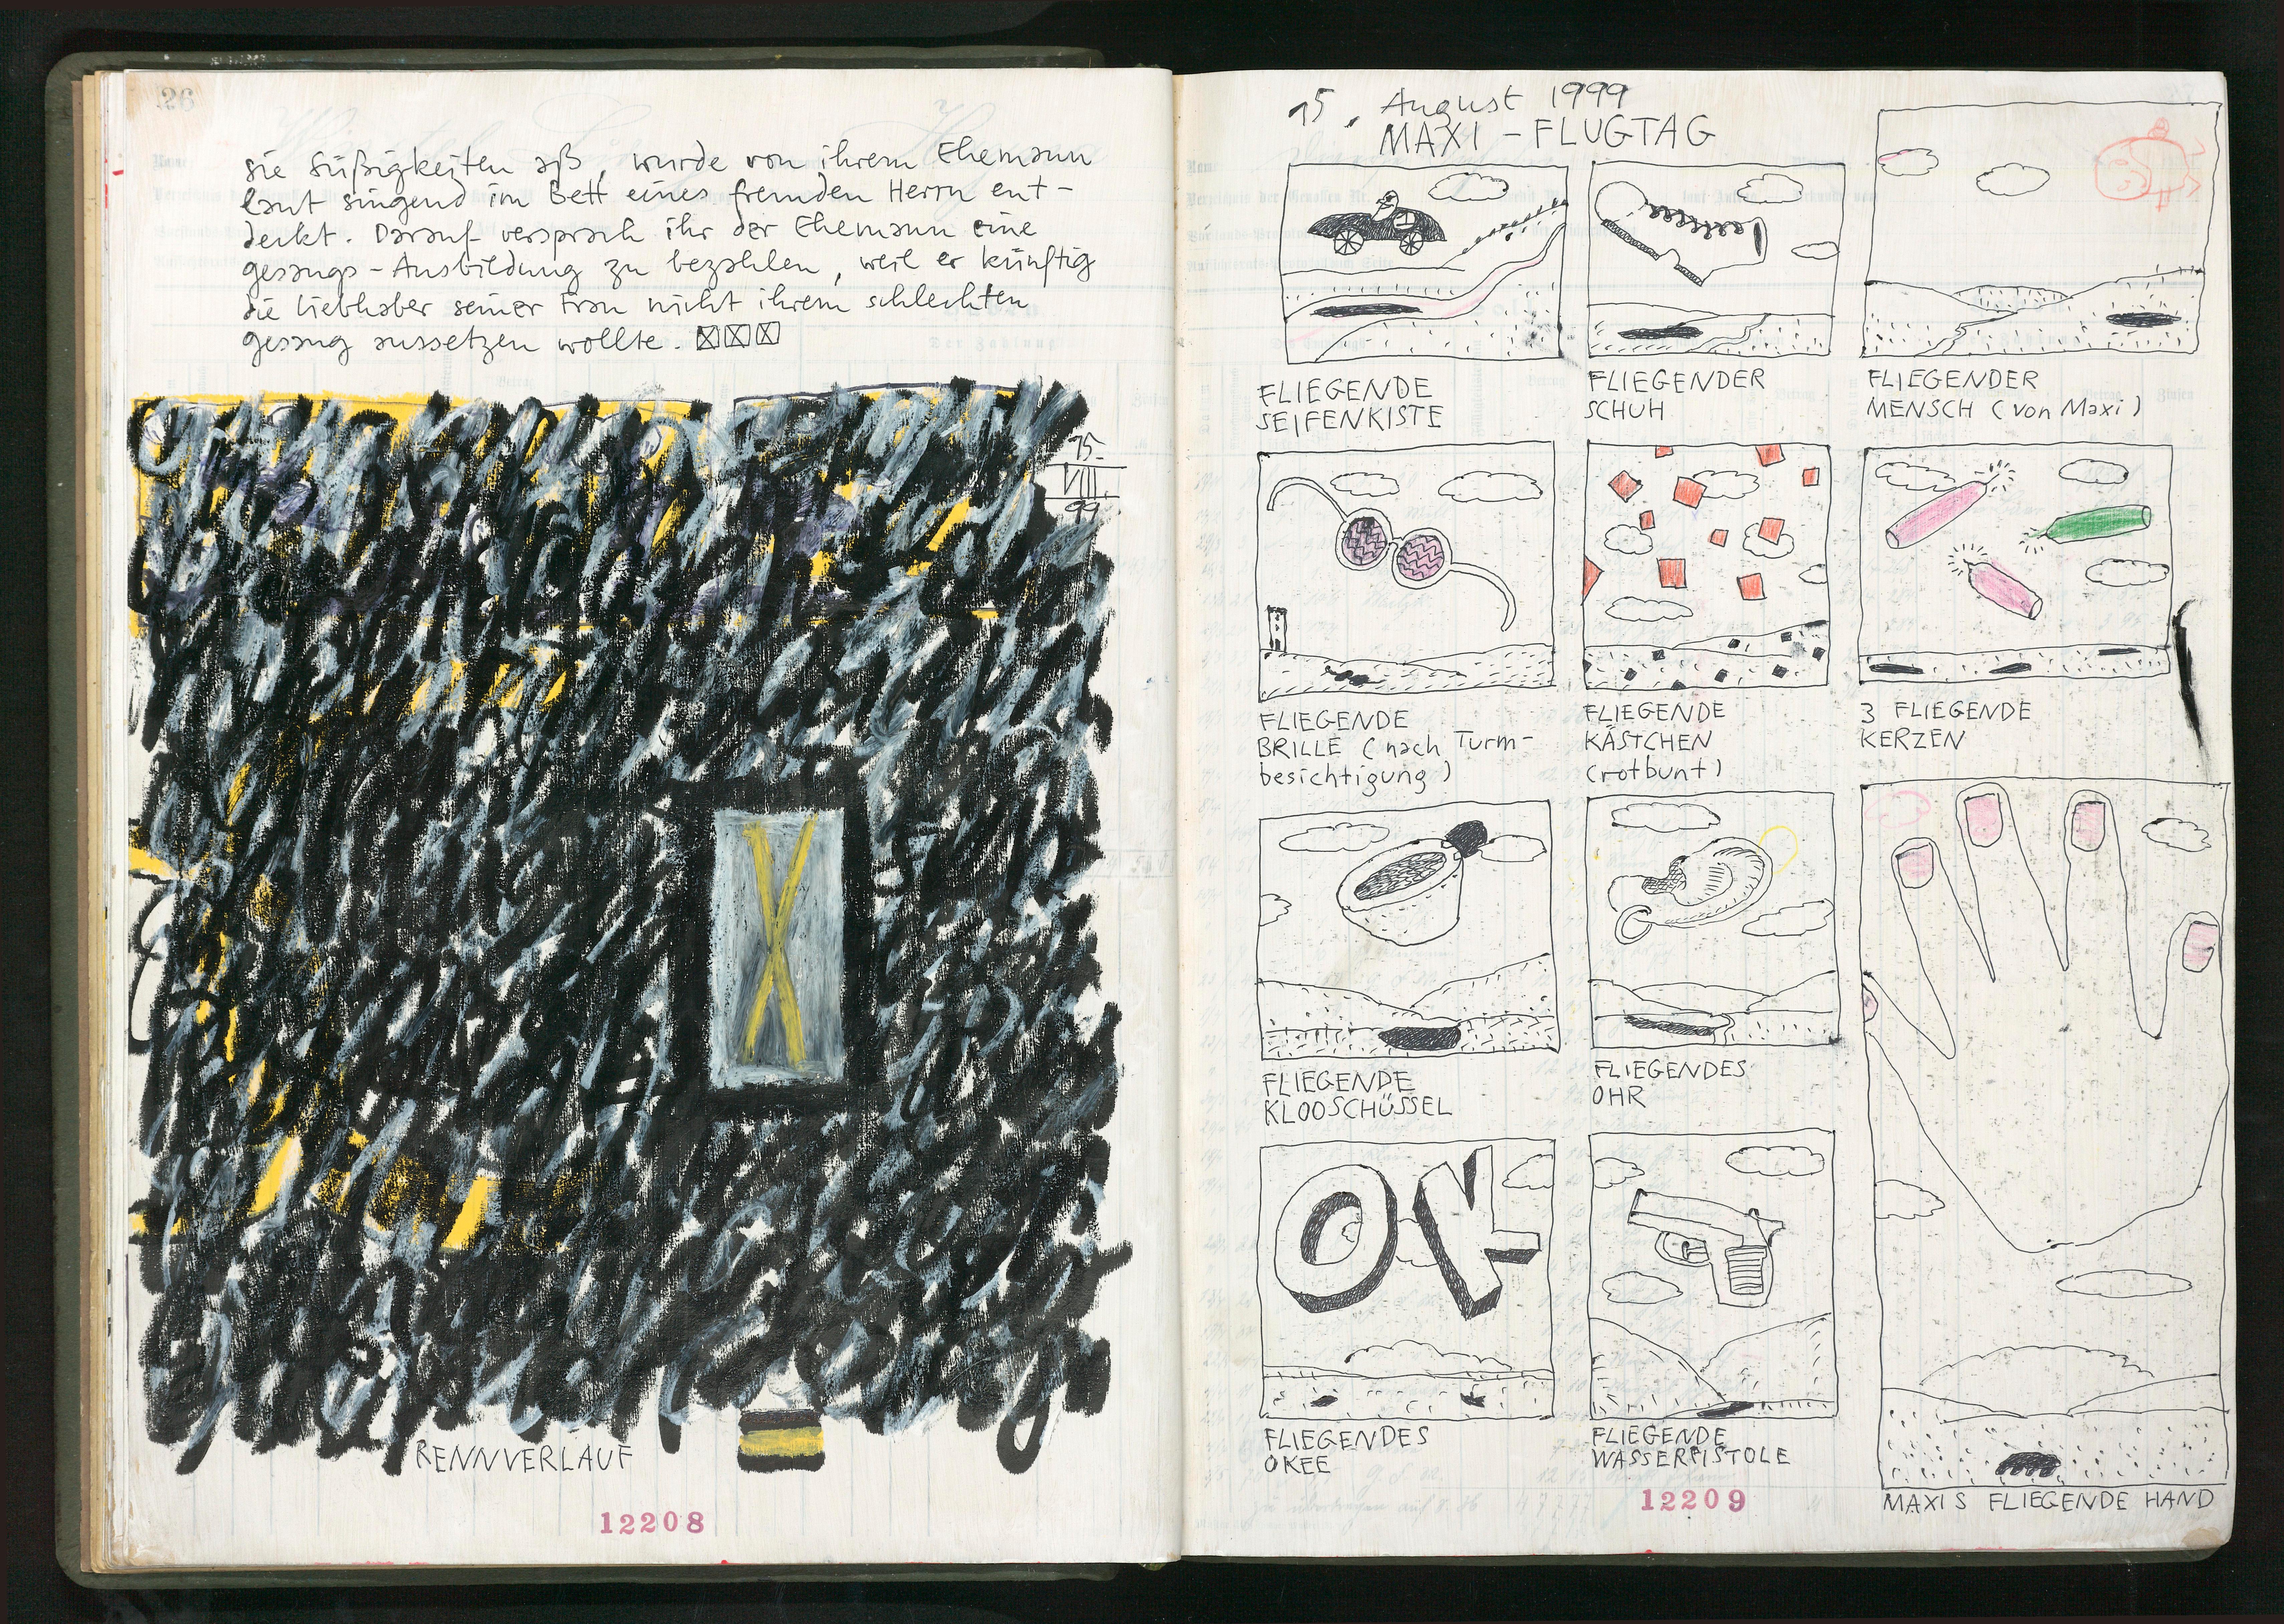 26
sie Süßigkeiten aß, wurde von ihrem Ehemann
laut singend im Bett eines fremden Herrn ent-
deckt. Darauf versprach ihr der Ehemann eine
gesangs-Ausbildung zu bezahlen, weil er künftig
die Liebhaber seiner Frau nicht ihrem schlechten
gesang aussetzen wollte.
15.
VIII.
99.
X
RENNVERLAUF
12208
15. August 1999
MAXI-FLUGTAG
FLIEGENDE
SEIFENKISTE
FLIEGENDER
SCHUH
FLIEGENDER
MENSCH (von Maxi)
FLIEGENDE
BRILLE (nach Turm-
besichtigung)
FLIEGENDE
KÄSTCHEN
(rotbunt)
3 FLIEGENDE
KERZEN
FLIEGENDE
KLOOSCHÜSSEL
FLIEGENDES
OHR
OK
FLIEGENDES
OKEE
FLIEGENDE
WASSERPISTOLE
MAXIS FLIEGENDE HAND
12209